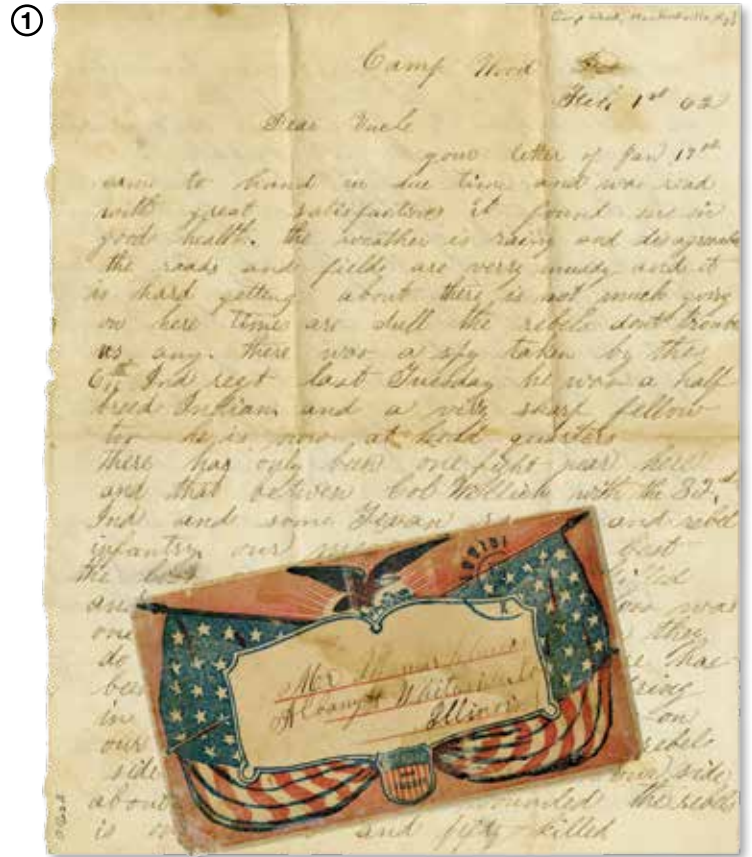 ①
Camp Wood
Feb 1st 62
Dear Uncle
your letter of Jan 17th
came to hand in due time and was read
with great satisfaction it found me in
good health. the weather is rainy and disagreeable
the roads and fields are verry muddy and it
is hard getting about there is not much going
on here times are dull the rebels dont trouble
us any. there was a spy taken by the
6th Ind regt last Tuesday he was a half
breed Indian and a very sharp fellow
too he is now at head quarters
there has only been one fight near here
and that between Col Willich with the 32nd
Ind and some Texan and rebel
infantry our best
the killed
and was
one they
do
been
in on
our rebels
side our side
about wounded the rebels
is and fifty killed
Mr
Albany Whiteside
Illinois